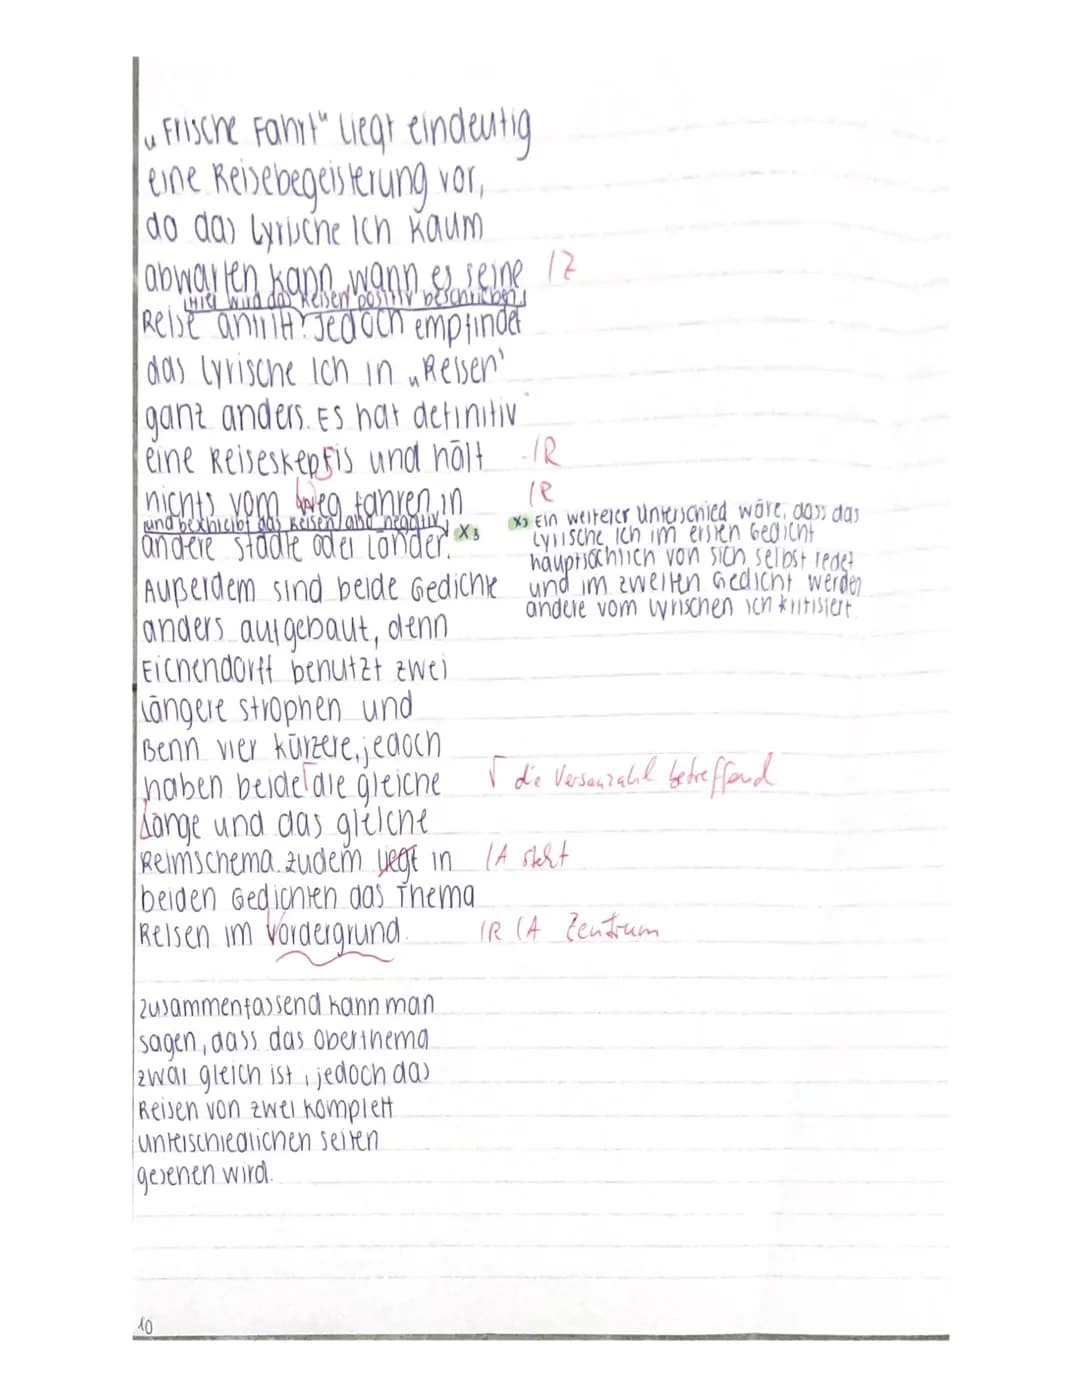 „Frische Fahrt" liegt eindeutig
eine Reisebegeisterung vor,
da das lyrische Ich kaum
abwarten kann, wann es seine IZ
(Hier wird das Reisen positiv beschrieben.)
Reise antritt. Jedoch empfindet
das lyrische Ich in „Reisen"
ganz anders. Es hat definitiv
eine Reiseskepsis und hält IR
nichts vom Weg fahren in IR
und beschreibt das Reisen negativ
andere Städte oder Länder. X3
X3 Ein weiterer Unterschied wäre, dass das
lyrische Ich im ersten Gedicht
hauptsächlich von sich selbst redet
und im zweiten Gedicht werden
andere vom lyrischen Ich kritisiert.
Außerdem sind beide Gedichte
anders aufgebaut, denn
Eichendorff benutzt zwei
längere Strophen und
Benn vier kürzere, jedoch
haben beide die gleiche √ die Versanzahl betreffend
Länge und das gleiche
Reimschema. Zudem liegt in IA steht
beiden Gedichten das Thema
Reisen im Vordergrund. IR IA Zentrum
Zusammenfassend kann man
sagen, dass das Oberthema
zwar gleich ist, jedoch das
Reisen von zwei komplett
unterschiedlichen Seiten
gesehen wird.
10